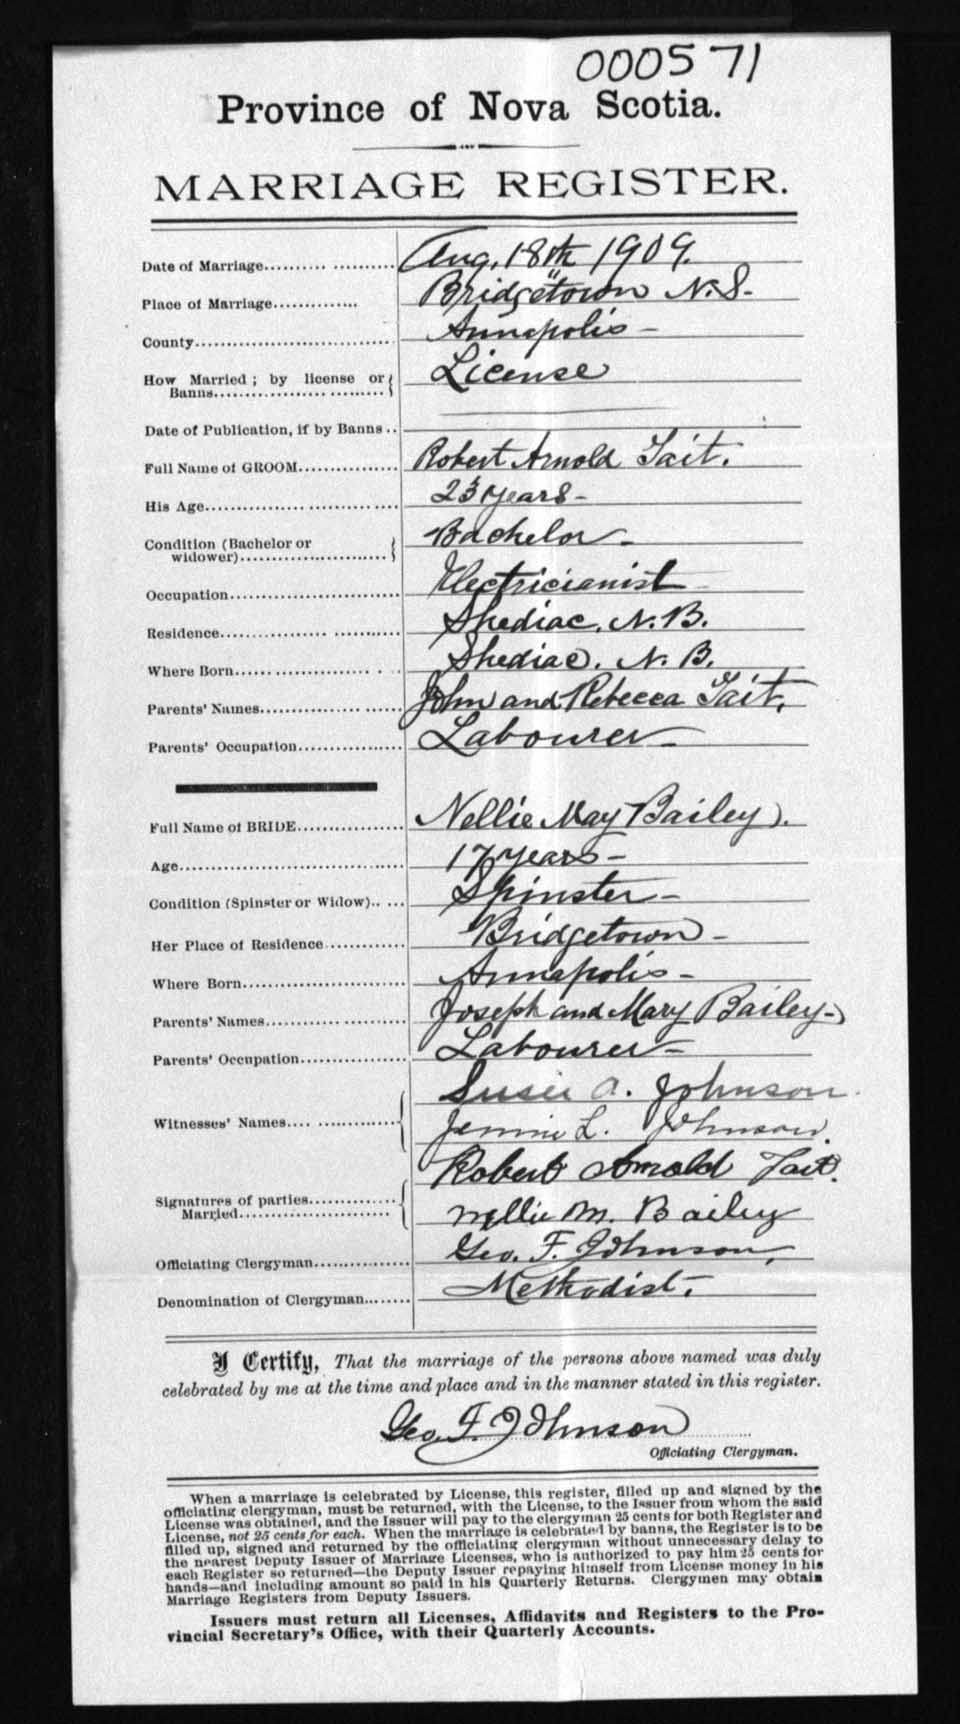 000571
Province of Nova Scotia.
MARRIAGE REGISTER.
Date of Marriage.......... ........... Aug. 18th 1909.
Place of Marriage.............. Bridgetown N.S.
County................................ Annapolis -
How Married ; by license or License
Banns................................
Date of Publication, if by Banns ..
Full Name of GROOM................ Robert Arnold Tait.
His Age................................ 23 years -
Condition (Bachelor or Bachelor -
widower)................................
Occupation................................ Electricianist
Residence................................ Shediac. N.B.
Where Born................................ Shediac. N. B.
Parents' Names................................ John and Rebecca Tait.
Parents' Occupation................ Labourer -
Full Name of BRIDE................ Nellie May Bailey.
Age................................ 17 years -
Condition (Spinster or Widow).. ... Spinster -
Her Place of Residence ............ Bridgetown -
Where Born................................ Annapolis -
Parents' Names................................ Joseph and Mary Bailey -
Parents' Occupation................ Labourer -
Susie A. Johnson
Witnesses' Names.... .............. Jennie L. Johnson.
Robert Arnold Tait.
Signatures of parties..............
Married........................ Nellie M. Bailey
Officiating Clergyman.............. Geo. F. Johnson,
Denomination of Clergyman........ Methodist.
I Certify, That the marriage of the persons above named was duly
celebrated by me at the time and place and in the manner stated in this register.
Geo. F. Johnson
Officiating Clergyman.
When a marriage is celebrated by License, this register, filled up and signed by the
officiating clergyman, must be returned, with the License, to the Issuer from whom the said
License was obtained, and the Issuer will pay to the clergyman 25 cents for both Register and
License, not 25 cents for each. When the marriage is celebrated by banns, the Register is to be
filled up, signed and returned by the officiating clergyman without unnecessary delay to
the nearest Deputy Issuer of Marriage Licenses, who is authorized to pay him 25 cents for
each Register so returned—the Deputy Issuer repaying himself from License money in his
hands—and including amount so paid in his Quarterly Returns. Clergymen may obtain
Marriage Registers from Deputy Issuers.
Issuers must return all Licenses, Affidavits and Registers to the Pro-
vincial Secretary's Office, with their Quarterly Accounts.